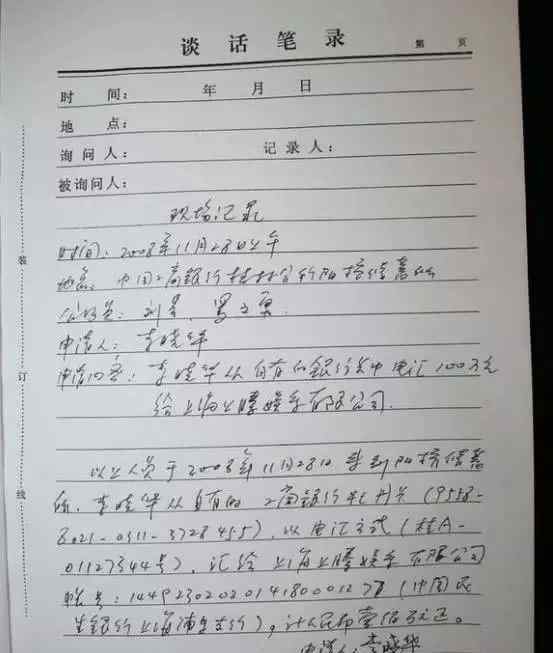 谈话笔录 第 页
时 间: 年 月 日
地 点:
询 问 人: 记 录 人:
被询问人:
现场记录
时间: 2008年11月28日上午
地点: 中国工商银行桂林分行阳桥储蓄所
公证员: 刘
申请人: 李晓华
申请内容: 李晓华从自有的银行卡中电汇100万元
给上海上腾娱乐有限公司.
以上人员于2008年11月28日来到阳桥储蓄
所, 李晓华从自有的工商银行牡丹卡(9558-
8021-0311-3728455), 以电汇方式(桂A-
01127344号), 汇给上海上腾娱乐有限公司
帐号: (中国民
生银行上海浦东支行), 计人民币壹佰万元正。
申请人: 李晓华
装
订
线